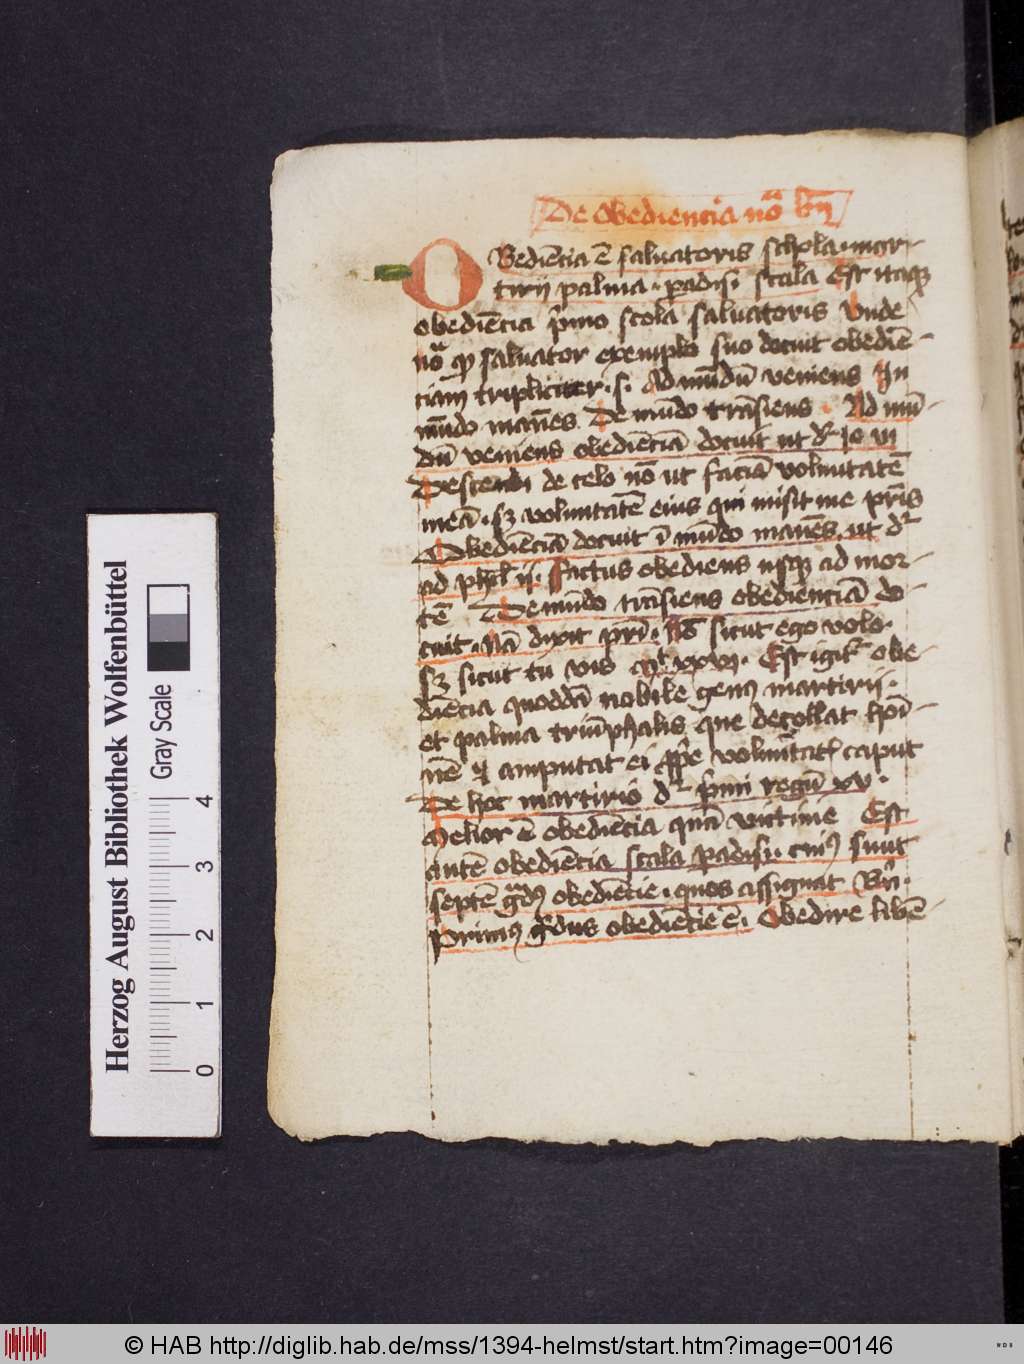 De obediencia nõ bñ
OBediẽcia ẽ saluatoris schola · mar-
tirij palma · padisi scala Est itaqꝫ
obediẽcia pͥmo scola saluatoris Vnde
saluator exemplo suo docuit obediẽ-
ciam tripliciter · s · Ad mũdũ veniens In
mũdo manẽs De mũdo trãsiens · Ad mũ-
dũ veniens obediẽciã docuit ut dꝛ Jo vi
Descendi de celo nõ ut faciã voluntatẽ
meã · sꝫ voluntatẽ eius qui misit me pr̃is
Obediẽciã docuit ĩ mũdo manẽs ut dꝛ
ad phil ij · factus obediens usqꝫ ad mor-
tẽ De mũdo trãsiens obedienciã do-
cuit · Nã dixit pr̃i · Nõ sicut ego volo ·
sꝫ sicut tu vis mͭ xxvj · Est igit᷑ obe-
diẽcia quoddã nobile genꝰ martirij ·
et palma triũphalis que decollat hoĩ-
nẽ amputat ei voluntatis caput
De hoc martirio dꝛ pͥmi regũ xv ·
Melior ẽ obediẽcia quã victime Est
autẽ obediẽcia scala padisi · cuiꝰ sunt
septẽ gͣdꝰ obediẽcie · quos assignat Bñ ·
Primꝰ gͣdus obediẽcie ẽ · Obedire libẽ-
Herzog August Bibliothek Wolfenbüttel
Gray Scale
0 1 2 3 4
© HAB http://diglib.hab.de/mss/1394-helmst/start.htm?image=00146